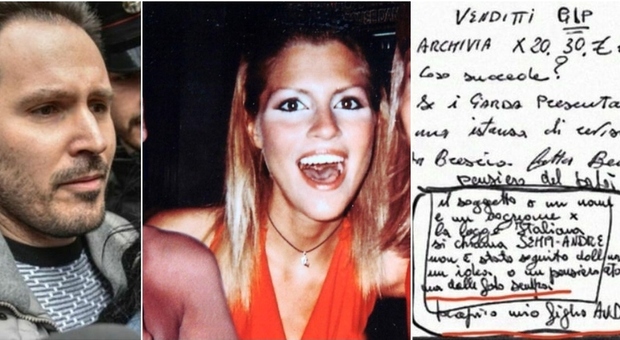 VENDITTI GIP
ARCHIVIA X 20. 30. €
?
Cosa succede?
Se i GARDA Presenta
una istanza di
Brescia
pensiero del
il soggetto o un nome
è un cognome x
la legge italiana
si chiama SEMPI-ANDRE
non è stato seguito
un idea, o un pensiero
ma delle foto
mio figlio AND